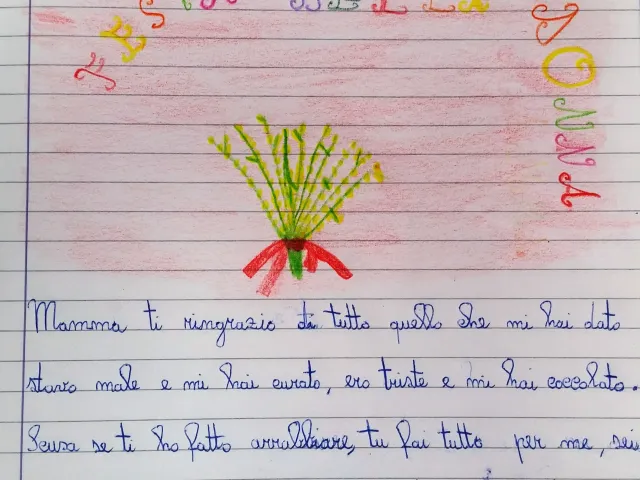 DONNA
Mamma ti ringrazio di tutto quello che mi hai dato
stavo male e mi hai curato, ero triste e mi hai coccolato.
Scusa se ti ho fatto arrabbiare, tu fai tutto per me, sei